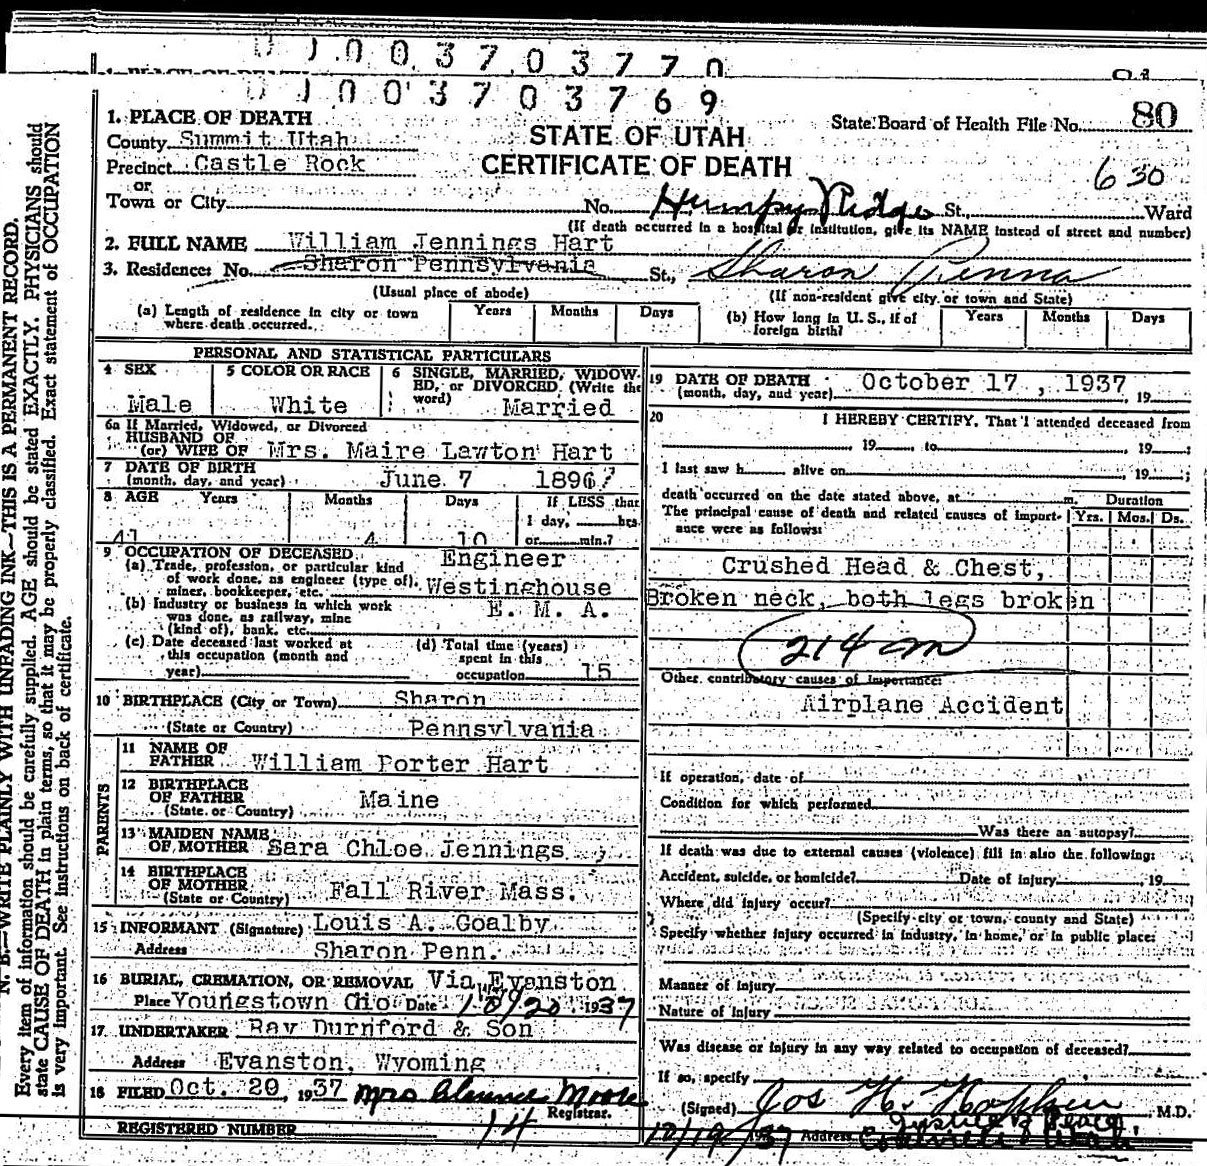 0 1 0 0 3 7 0 3 7 7 0
0 1 0 0 3 7 0 3 7 6 9
1. PLACE OF DEATH
County Summit Utah
Precinct Castle Rock
or
Town or City
STATE OF UTAH
CERTIFICATE OF DEATH
State Board of Health File No. 80
630
No. Humpy Ridge St., Ward
(If death occurred in a hospital or institution, give its NAME instead of street and number)
2. FULL NAME William Jennings Hart
3. Residence: No. Sharon Pennsylvania St., Sharon Penna
(Usual place of abode) (If non-resident give city or town and State)
(a) Length of residence in city or town where death occurred. Years Months Days
(b) How long in U. S., if of foreign birth? Years Months Days
PERSONAL AND STATISTICAL PARTICULARS
4 SEX Male
5 COLOR OR RACE White
6 SINGLE, MARRIED, WIDOWED, or DIVORCED (Write the word) Married
6a If Married, Widowed, or Divorced
HUSBAND OF
(or) WIFE OF Mrs. Maire Lawton Hart
7 DATE OF BIRTH
(month, day, and year) June 7 1896
8 AGE Years Months Days If LESS than
1 day, hrs
41 4 10 or min.?
9 OCCUPATION OF DECEASED Engineer
(a) Trade, profession, or particular kind
of work done, as engineer (type of), Westinghouse
miner, bookkeeper, etc.
(b) Industry or business in which work E. M. A.
was done, as railway, mine
(kind of), bank, etc.
(c) Date deceased last worked at
this occupation (month and
year)
(d) Total time (years)
spent in this
occupation 15
10 BIRTHPLACE (City or Town) Sharon
(State or Country) Pennsylvania
PARENTS
11 NAME OF
FATHER William Porter Hart
12 BIRTHPLACE
OF FATHER Maine
(State or Country)
13 MAIDEN NAME
OF MOTHER Sara Chloe Jennings
14 BIRTHPLACE
OF MOTHER Fall River Mass.
(State or Country)
15 INFORMANT (Signature) Louis A. Goalby
Address Sharon Penn.
16 BURIAL, CREMATION, OR REMOVAL Via Evanston
Place Youngstown Ohio Date 10/20 1937
17 UNDERTAKER Ray Durnford & Son
Address Evanston, Wyoming
18 FILED Oct. 20, 1937 Mrs Clarence Moore
Registrar.
REGISTERED NUMBER 14
19 DATE OF DEATH October 17, 1937
(month, day, and year) , 19
20 I HEREBY CERTIFY, That I attended deceased from
19 to , 19 ;
I last saw h alive on , 19 ;
death occurred on the date stated above, at m. Duration
The principal cause of death and related causes of importance were as follows: Yrs. Mos. Ds.
Crushed Head & Chest,
Broken neck, both legs broken
214 am
Other contributory causes of importance:
Airplane Accident
If operation, date of
Condition for which performed
Was there an autopsy?
If death was due to external causes (violence) fill in also the following:
Accident, suicide, or homicide? Date of injury , 19
Where did injury occur?
(Specify city or town, county and State)
Specify whether injury occurred in industry, in home, or in public place:
Manner of injury
Nature of injury
Was disease or injury in any way related to occupation of deceased?
If so, specify
(Signed) Jos H. Hopkin M.D.
Justice of Peace
10/19/1937 Address Utah
N. B.—WRITE PLAINLY WITH UNFADING INK—THIS IS A PERMANENT RECORD.
Every item of information should be carefully supplied. AGE should be stated EXACTLY. PHYSICIANS should
state CAUSE OF DEATH in plain terms, so that it may be properly classified. Exact statement of OCCUPATION
is very important. See instructions on back of certificate.